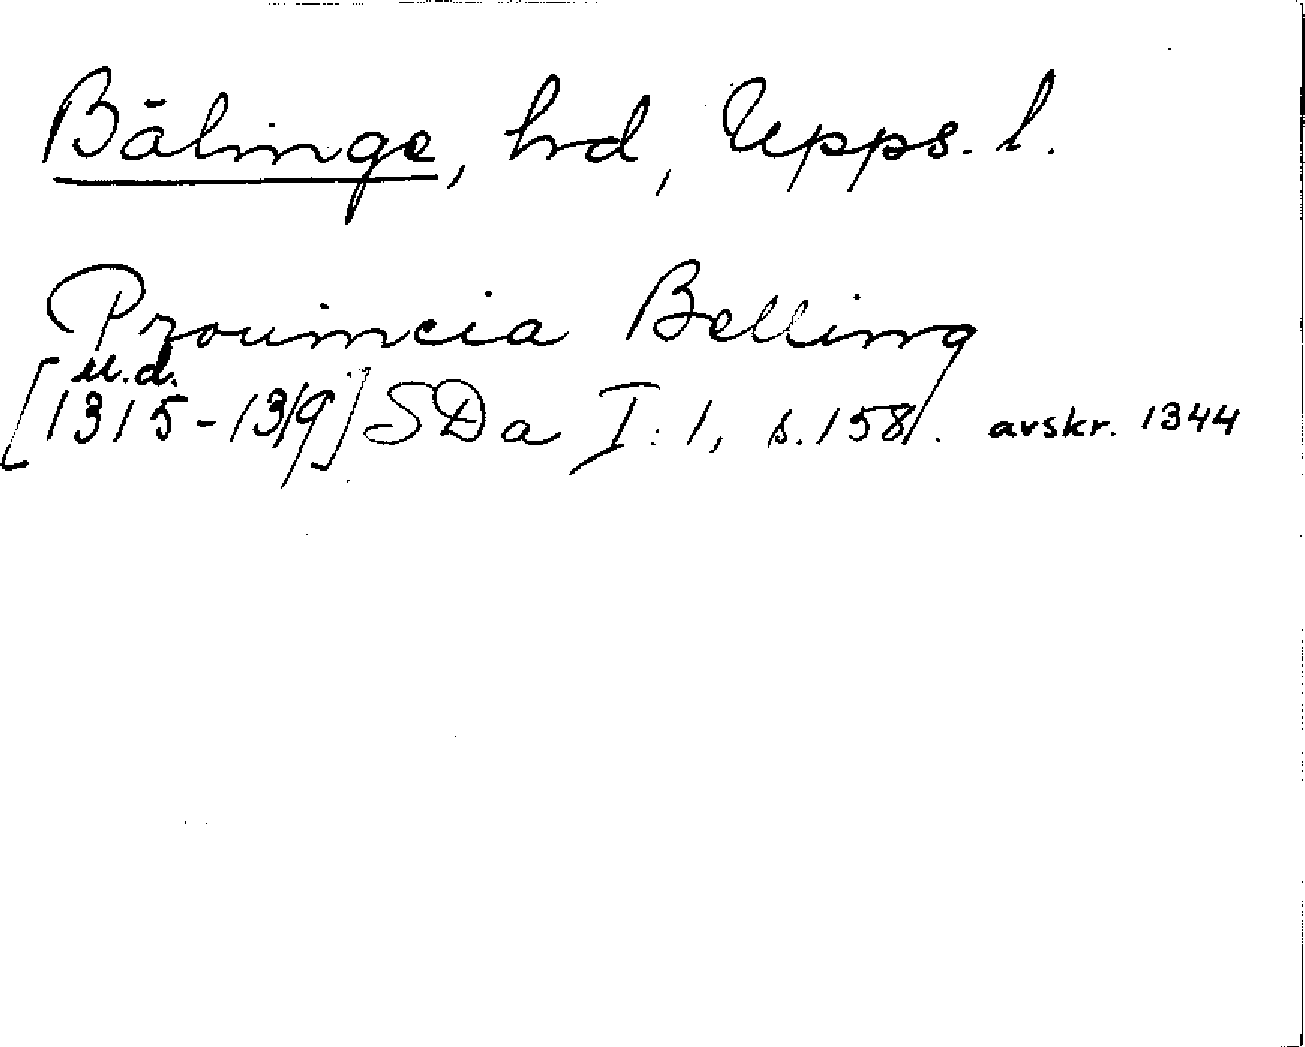 Bälinge, hd, Upps. l.
Prouincia Belling
u.d.
[1315-1319] SDa I:1, s. 158. avskr. 1344